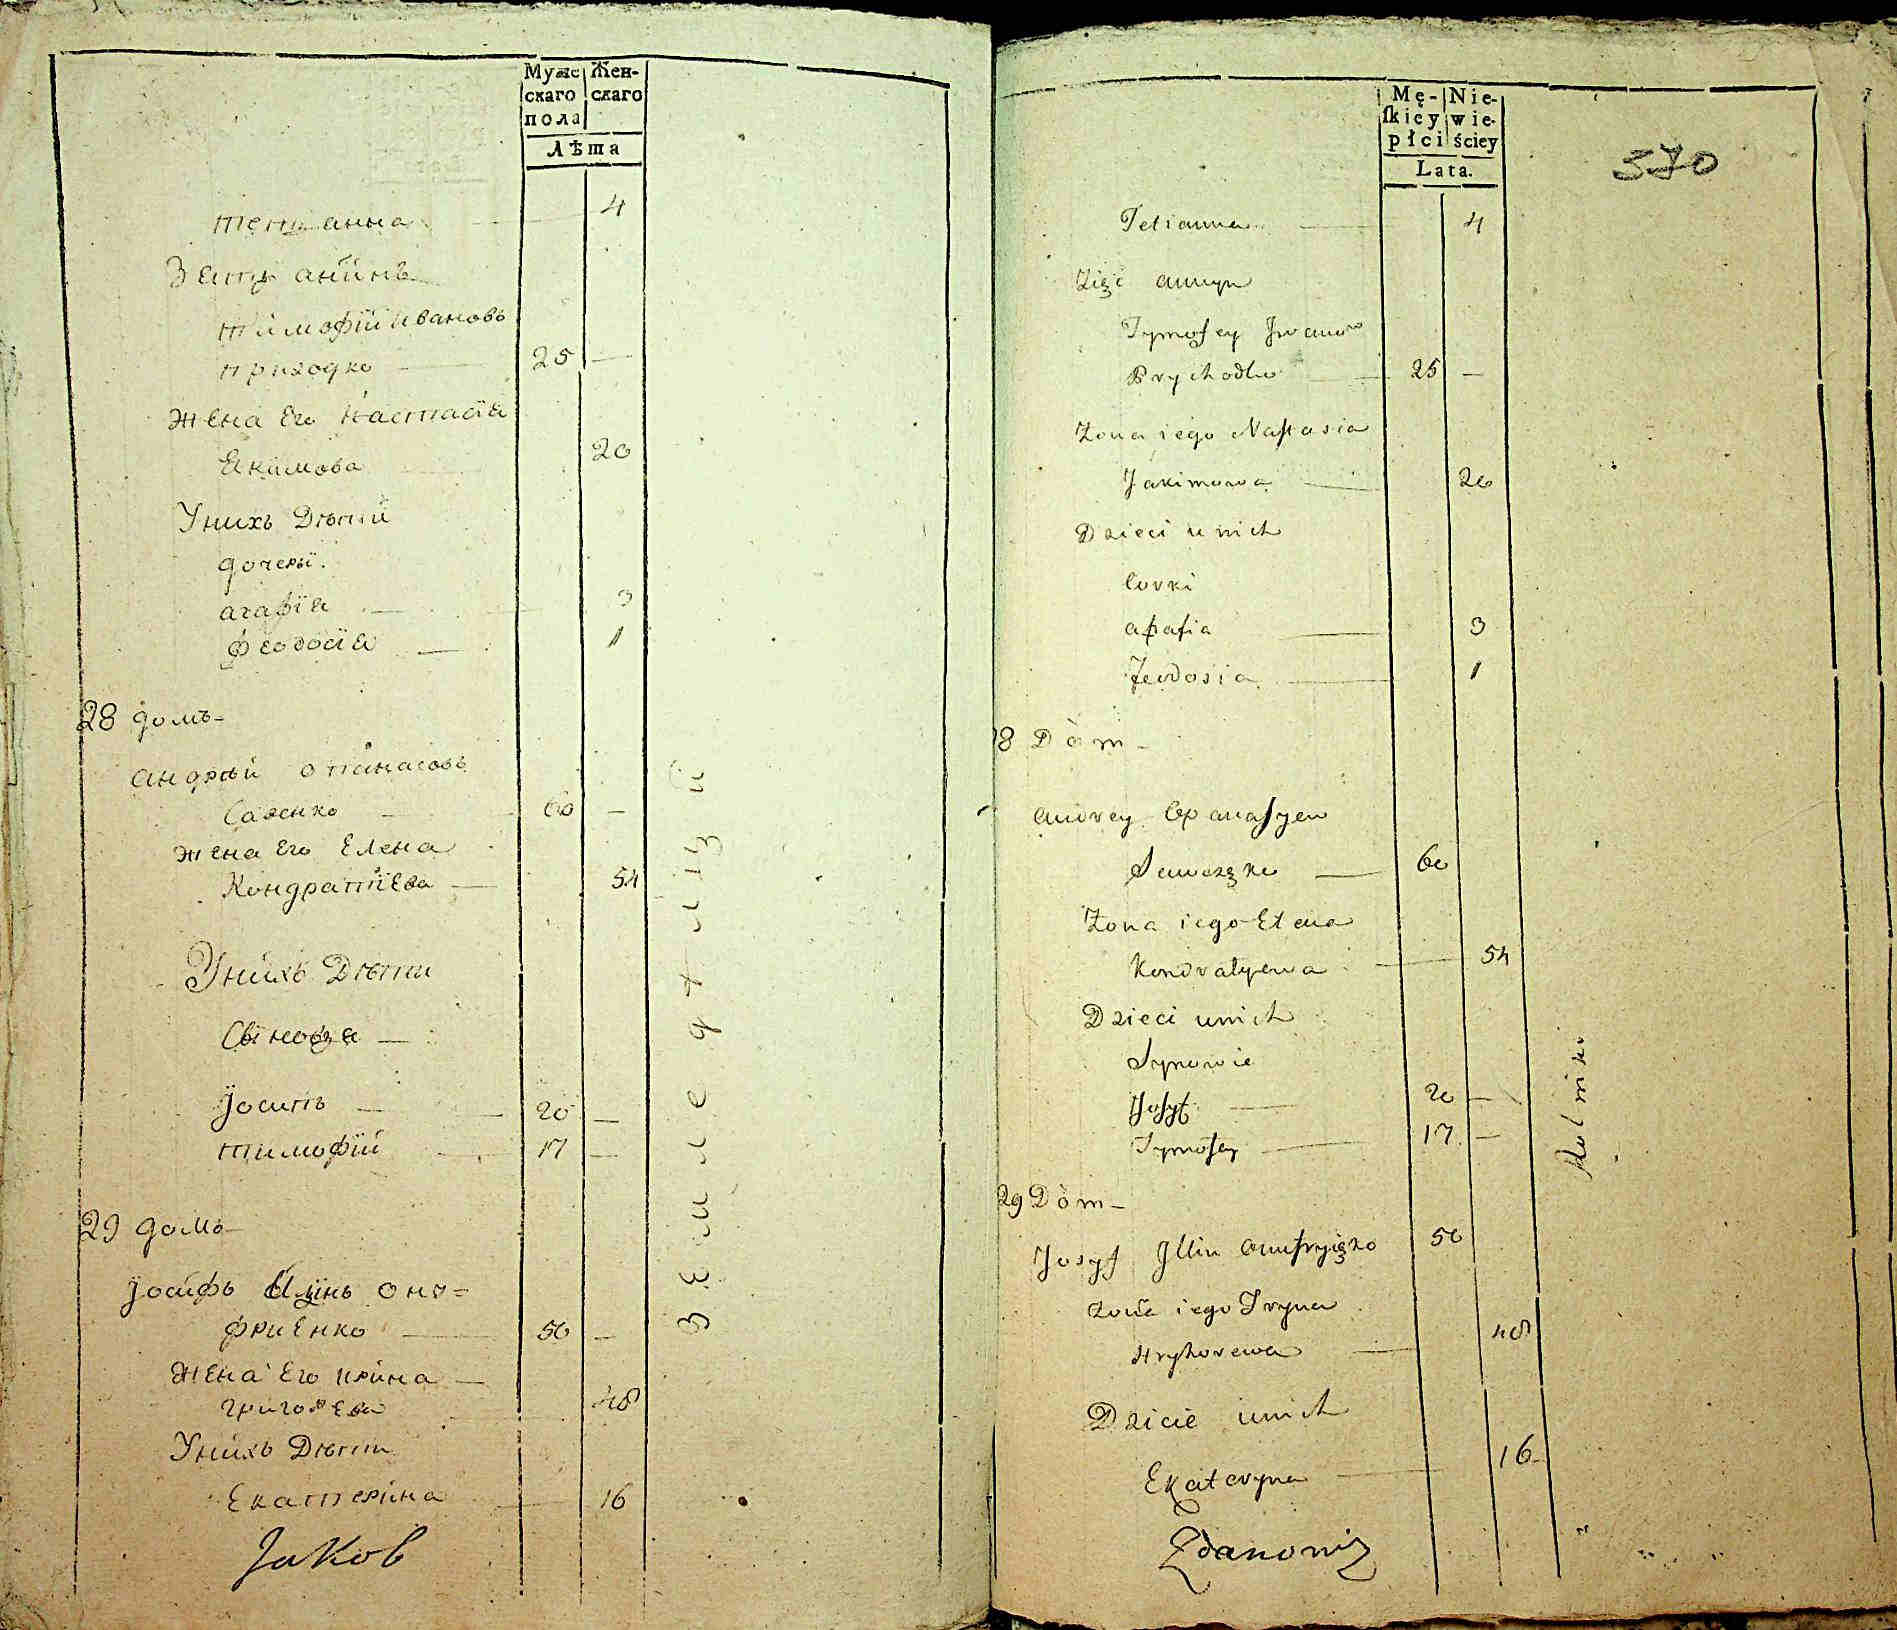 Мужс Жен-
скаго скаго
пола
Лѣта
тетианна 4
Зять анинъ
тимофїй Ивановъ
приходко 25 —
жена Его Настасїя
Екимова 20
Унихъ Дѣтий
дочеры.
агафїя 3
феодосїя 1
28 домъ-
андрѣй опанасовъ
60 —
жена Его Елена
Кондратїева 54
Унихъ Дѣти
Сыновя
Іосипъ 20 —
тимофїй 17 —
29 домъ-
Іосифъ Илїинъ ону=
фриЕнко 50 —
жена Его ирина
григорева 48
Унихъ Дѣти
Екатерина 16
Jakob
земледѣлцы
Mę- Nie-
ſkiey wie-
płci ściey
Lata.
370
Tetianna 4
Zięć annyn
Tymofey Jwanow
Prychodko 25 —
Żona iego Nastasia
Jakimowa 20
Dzieci u nich
Corki
Feodosia 1
28 Dòm -
Andrey Opanasyew
60
Zona iego Elena
Kondratyewa 54
Dzieci unich
Synowie
Josyf 20 —
Tymofey 17 —
29 Dòm -
Josyf Jllin Onufryięko 50
żona iego Iryna
Hryhorewa 48
Dzicie unich
Ekateryna 16
Zdanowicz
Rolniki